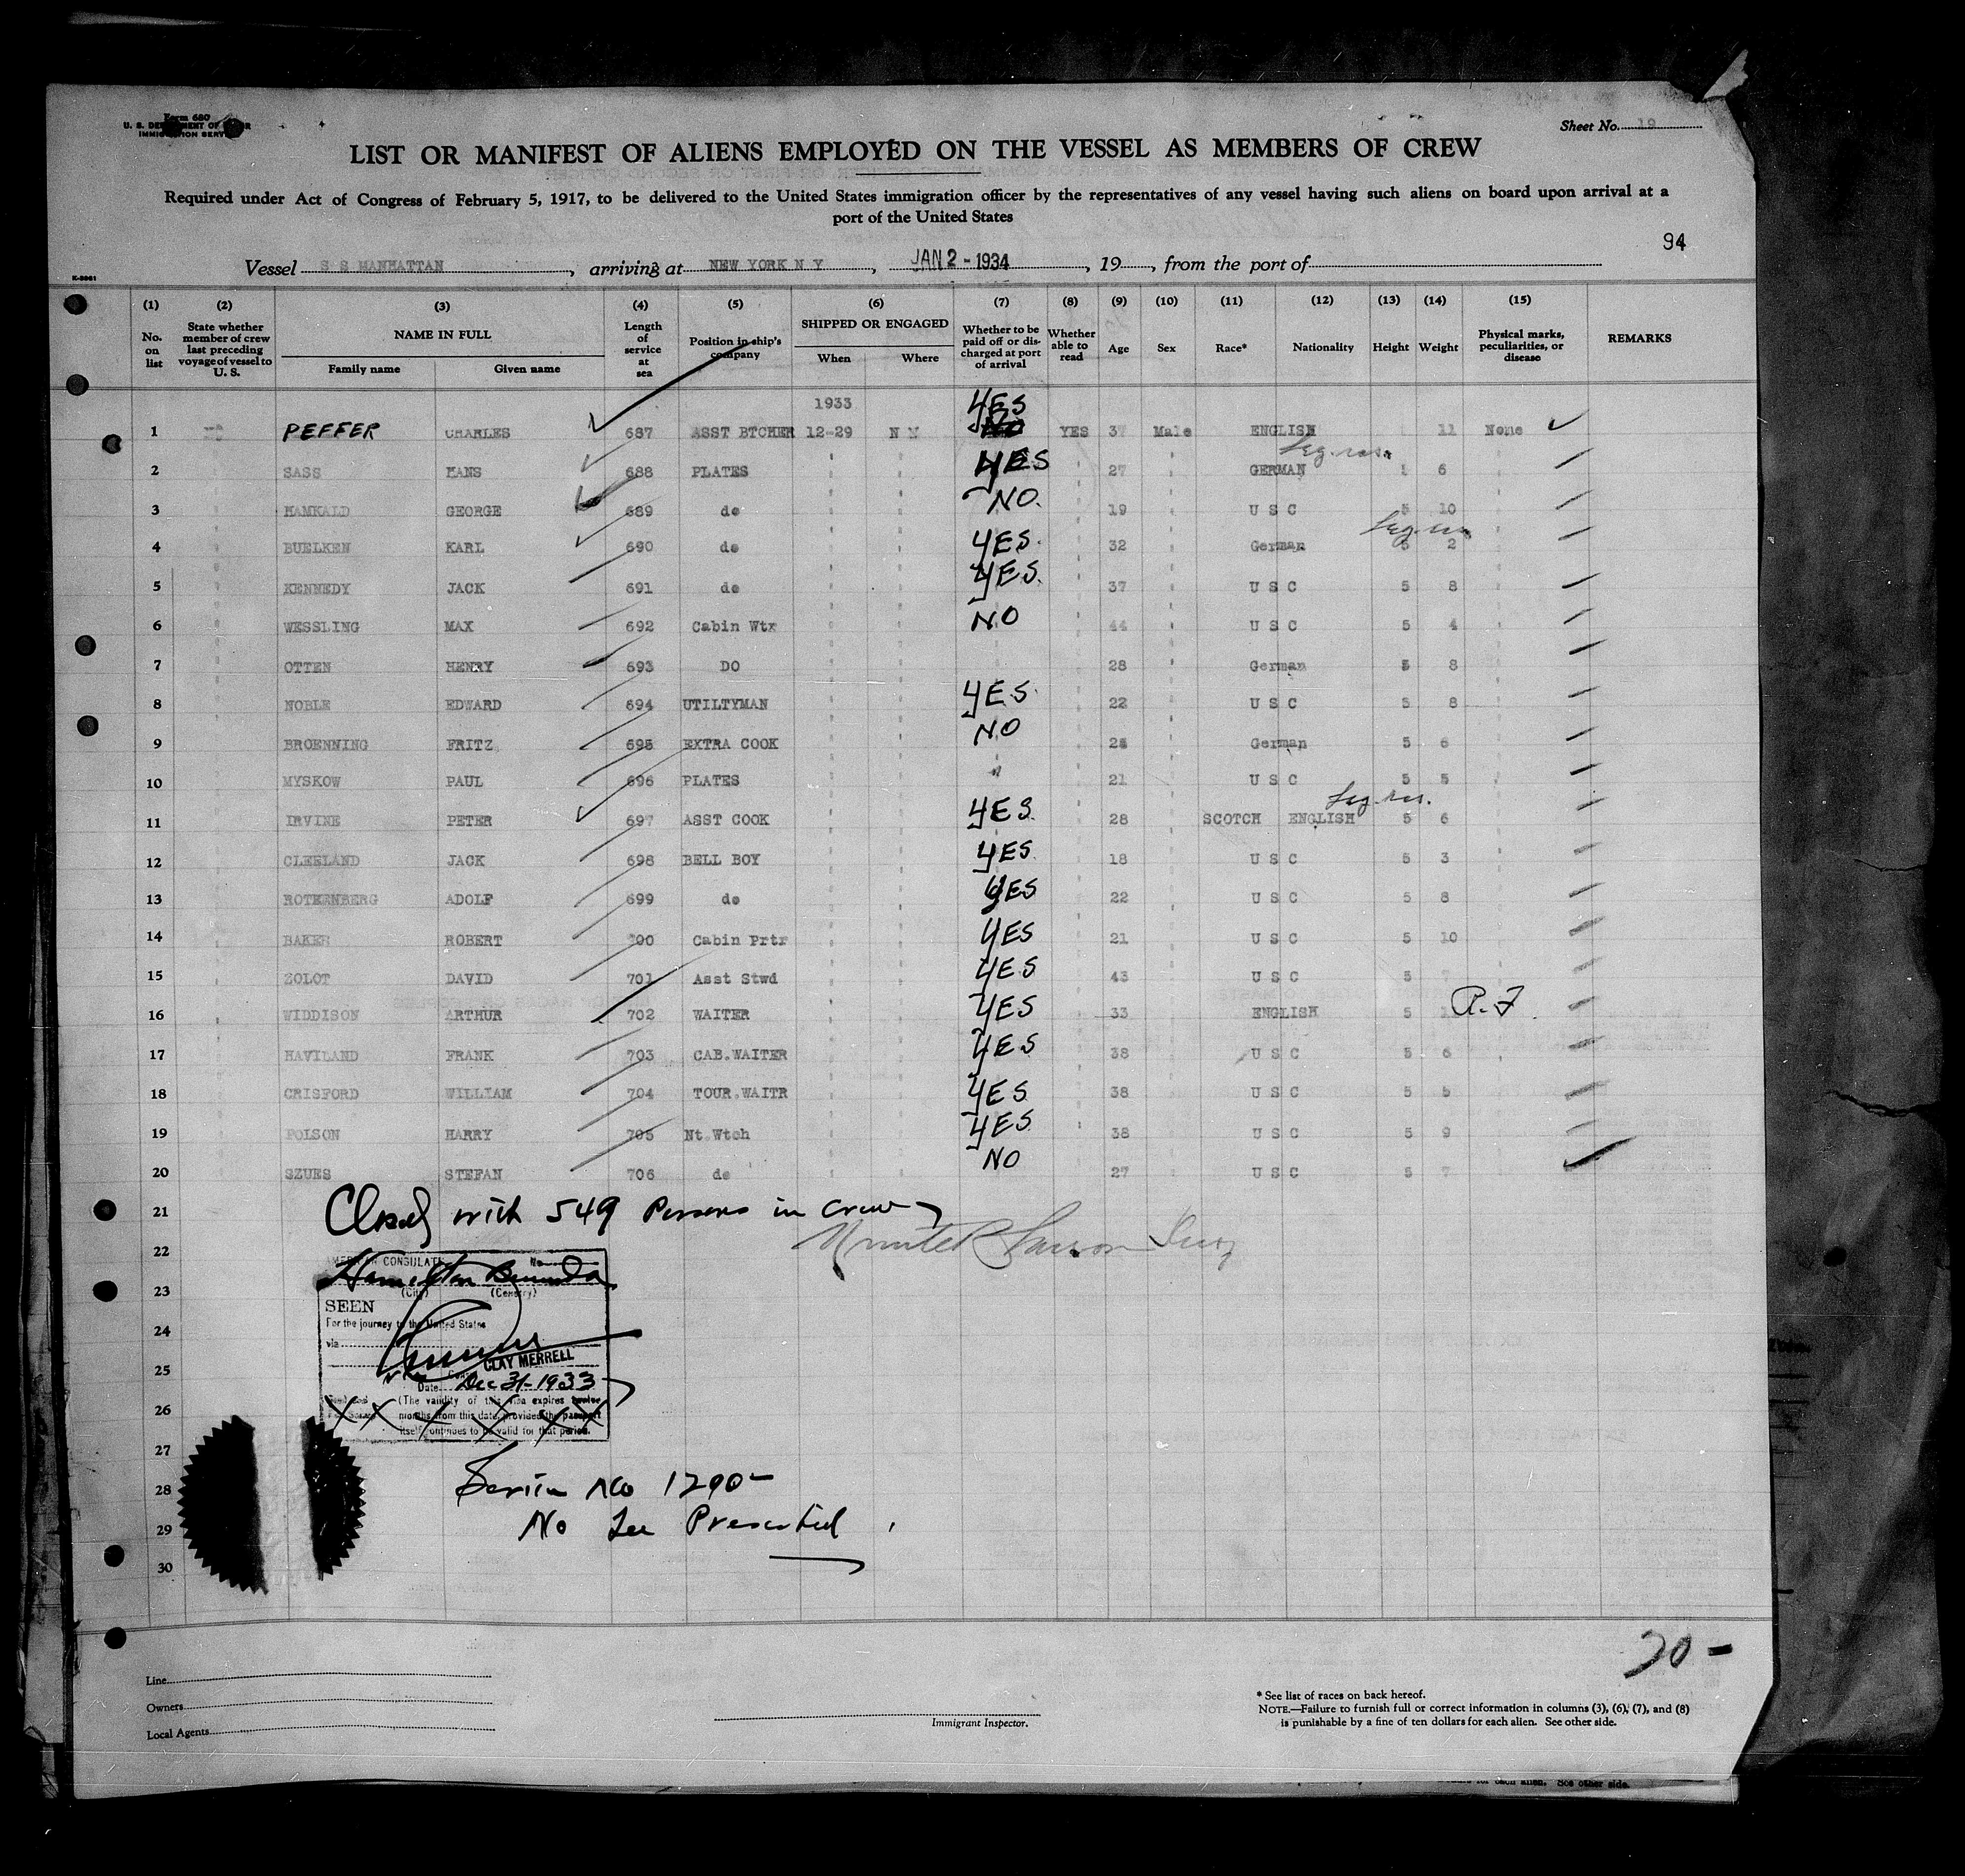 Form 680
U. S. DEPARTMENT OF LABOR
IMMIGRATION SERVICE
Sheet No. 19
LIST OR MANIFEST OF ALIENS EMPLOYED ON THE VESSEL AS MEMBERS OF CREW
Required under Act of Congress of February 5, 1917, to be delivered to the United States immigration officer by the representatives of any vessel having such aliens on board upon arrival at a
port of the United States
94
Vessel S S MANHATTAN, arriving at NEW YORK N Y, JAN 2 - 1934, 19, from the port of
(1) (2) (3) (4) (5) (6) (7) (8) (9) (10) (11) (12) (13) (14) (15)
No. on list State whether member of crew last preceding voyage of vessel to U. S. NAME IN FULL Length of service at sea Position in ship's company SHIPPED OR ENGAGED Whether to be paid off or discharged at port of arrival Whether able to read Age Sex Race* Nationality Height Weight Physical marks, peculiarities, or disease REMARKS
Family name Given name When Where
1933 YES
1 PEFFER CHARLES 687 ASST BTCHER 12-29 N Y No YES 37 Male ENGLISH 11 None
2 SASS HANS 688 PLATES YES 27 GERMAN 6
3 HAMKALD GEORGE 689 do NO. 19 U S C 5 10
4 BUELKEN KARL 690 do YES. 32 German 5 2
5 KENNEDY JACK 691 do YES. 37 U S C 5 8
6 WESSLING MAX 692 Cabin Wtr NO 44 U S C 5 4
7 OTTEN HENRY 693 DO 28 German 5 8
8 NOBLE EDWARD 694 UTILTYMAN YES. 22 U S C 5 8
9 BROENNING FRITZ 695 EXTRA COOK NO German 5 6
10 MYSKOW PAUL 696 PLATES " 21 U S C 5 5
11 IRVINE PETER 697 ASST COOK YES 28 SCOTCH ENGLISH 5 6
12 CLEELAND JACK 698 BELL BOY YES 18 U S C 5 3
13 ROTKENBERG ADOLF 699 do YES 22 U S C 5 8
14 BAKER ROBERT 700 Cabin Prtr YES 21 U S C 5 10
15 ZOLOT DAVID 701 Asst Stwd YES 43 U S C 5 7
16 WIDDISON ARTHUR 702 WAITER YES 33 ENGLISH 5
17 HAVILAND FRANK 703 CAB.WAITER YES 38 U S C 5 6
18 CRISFORD WILLIAM 704 TOUR.WAITR YES 38 U S C 5 5
19 POLSON HARRY 705 Nt.Wtch YES 38 U S C 5 9
20 SZUES STEFAN 706 do NO 27 U S C 5 7
21 Closed with 549 Persons in crew
22
AMERICAN CONSULATE No
Hamilton Bermuda
(City) (Country)
23
SEEN
For the journey to the United States
24
via
25
CLAY MERRELL
Date Dec 31-1933
26
(The validity of this visa expires twelve
months from this date, provided the passport
itself continues to be valid for that period.
27
28 Service No 1290-
29 No Fee Prescribed
30
20 -
Line
Owners
Local Agents
Immigrant Inspector.
* See list of races on back hereof.
NOTE.—Failure to furnish full or correct information in columns (3), (6), (7), and (8)
is punishable by a fine of ten dollars for each alien. See other side.
See other side.